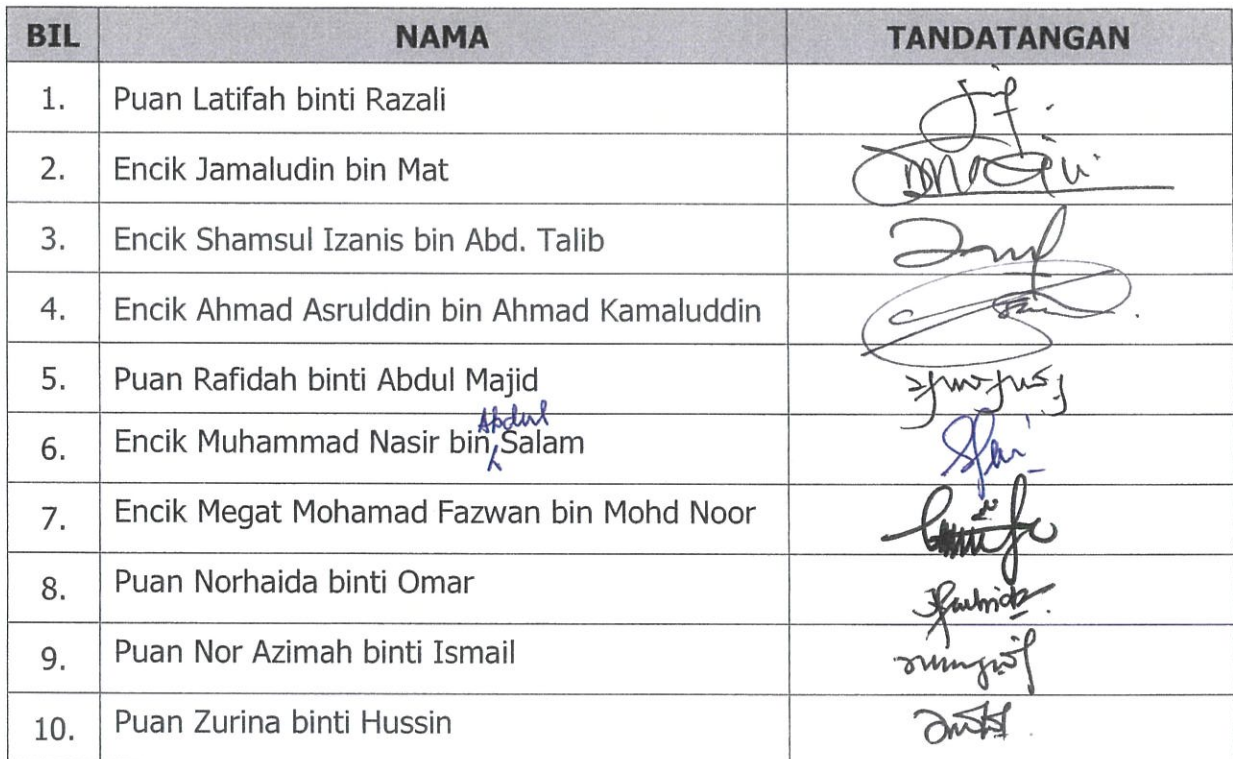 BIL NAMA TANDATANGAN
1. Puan Latifah binti Razali
2. Encik Jamaludin bin Mat
3. Encik Shamsul Izanis bin Abd. Talib
4. Encik Ahmad Asrulddin bin Ahmad Kamaluddin
5. Puan Rafidah binti Abdul Majid
6. Encik Muhammad Nasir bin Abdul Salam
7. Encik Megat Mohamad Fazwan bin Mohd Noor
8. Puan Norhaida binti Omar
9. Puan Nor Azimah binti Ismail
10. Puan Zurina binti Hussin